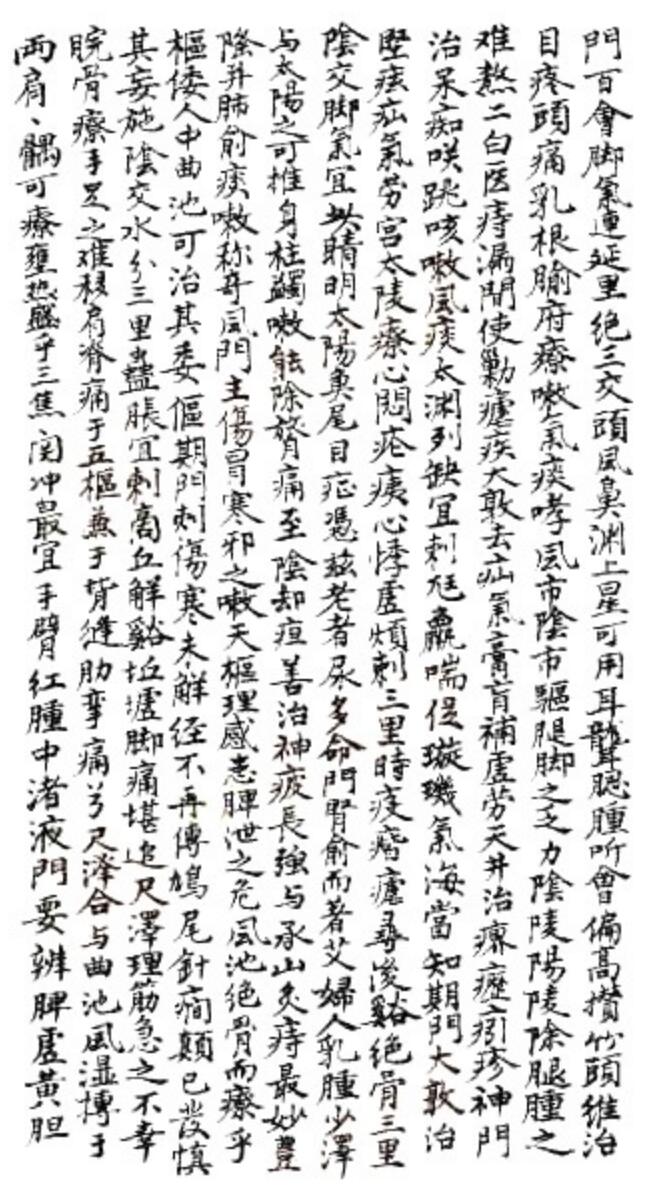 門百會脚氣連延里絕三交頭風鼻渊上星可用耳聾聡腫听會偏高攅竹頭維治
目疼頭痛乳根腧府療嗽氣痰哮風市陰市驅腿脚之乏力陰陵陽陵除腿腫之
难熬二白医痔漏間使勦瘧疾大敦去疝氣膏肓補虛劳天井治瘰癧癮疹神門
治呆痴咲跳咳嗽風痰太渊列缺宜刺尫羸喘促璇璣氣海當知期門大敦治
堅痃疝氣劳宮太陵療心悶疮痍心悸虛煩刺三里時疫痎瘧尋後谿絕骨三里
陰交脚氣宜此睛明太陽魚尾目症憑玆老者尿多命門腎俞而著艾婦人乳腫少澤
与太陽之可推身柱蠲嗽能除膂痛至陰却疸善治神疲長強与承山灸痔最妙豊
隆并肺俞痰嗽称奇風門主傷冒寒邪之嗽天樞理感患脾泄之危風池絕骨而療乎
樞倭人中曲池可治其委傴期門刺傷寒未解经不再傳鳩尾針癇顛已發慎
其妄施陰交水分三里蠱脹宜刺商丘解谿坵墟脚痛堪追尺澤理筋急之不幸
腕骨療手足之难移肩脊痛于五樞兼于背縫肋挛痛兮尺泽合与曲池風湿搏于
两肩、髃可療壅热盛乎三焦関冲最宜手臂红腫中渚液門要辨脾虛黄胆